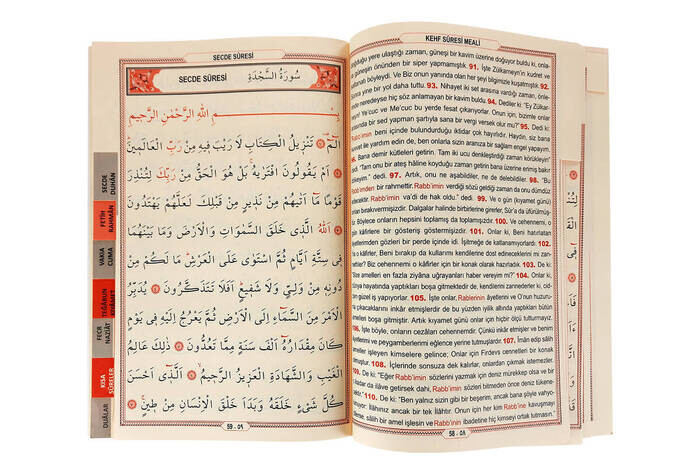 SECDE SÛRESİ
SECDE SÛRESİ سُورَةُ السَّجْدَةِ
بِسْمِ اللهِ الرَّحْمٰنِ الرَّحِيمِ
الٓمٓ ۝ تَنْزِيلُ الْكِتَابِ لَا رَيْبَ فِيهِ مِنْ رَبِّ الْعَالَمِينَ
۝ اَمْ يَقُولُونَ افْتَرٰيهُ بَلْ هُوَ الْحَقُّ مِنْ رَبِّكَ لِتُنْذِرَ
قَوْمًا مَٓا اَتٰيهُمْ مِنْ نَذِيرٍ مِنْ قَبْلِكَ لَعَلَّهُمْ يَهْتَدُونَ
۝ اَللهُ الَّذِى خَلَقَ السَّمٰوَاتِ وَالْاَرْضَ وَمَا بَيْنَهُمَا
فِى سِتَّةِ اَيَّامٍ ثُمَّ اسْتَوٰى عَلَى الْعَرْشِ مَا لَكُمْ مِنْ
دُونِهِ مِنْ وَلِىٍّ وَلَا شَفِيعٍ اَفَلَا تَتَذَكَّرُونَ ۝ يُدَبِّرُ
الْاَمْرَ مِنَ السَّمَٓاءِ اِلَى الْاَرْضِ ثُمَّ يَعْرُجُ اِلَيْهِ فِى يَوْمٍ
كَانَ مِقْدَارُهُٓ اَلْفَ سَنَةٍ مِمَّا تَعُدُّونَ ۝ ذٰلِكَ عَالِمُ
الْغَيْبِ وَالشَّهَادَةِ الْعَزِيزُ الرَّحِيمُ ۝ اَلَّذِٓى اَحْسَنَ
كُلَّ شَىْءٍ خَلَقَهُ وَبَدَاَ خَلْقَ الْاِنْسَانِ مِنْ طِينٍ ۝
59 - ٥٩
SECDE
DUHÂN
FETİH
RAHMÂN
VAKIA
CUMA
TEGÂBUN
FECR
NAZİÂT
KISA
SÛRELER
DUÂLAR
KEHF SÛRESİ MEALİ
doğduğu yere ulaştığı zaman, güneşi bir kavim üzerine doğuyor buldu ki, onlar
güneşin önünden bir siper yapmamıştık. 91. İşte Zülkarneyn'in kudret ve
saltanatı böyleydi. Ve Biz onun yanında olan her şeyi bilgimizle kuşatmıştık. 92.
Sonra yine bir yol daha tuttu. 93. Nihayet iki set arasına vardığı zaman, önle-
rinde neredeyse hiç söz anlamayan bir kavim buldu. 94. Dediler ki: "Ey Zülkar-
neyn! Ye'cuc ve Me'cuc bu yerde fesat çıkarıyorlar. Onun için, bizimle onlar
arasında bir sed yapman şartıyla sana bir vergi versek olur mu?" 95. Dedi ki:
"Rabb'imin beni içinde bulundurduğu iktidar çok hayırlıdır. Haydin, siz bana
kuvvetle yardım edin de, ben onlarla sizin aranıza bir sağlam engel yapayım.
96. "Bana demir kütleleri getirin. Tam iki ucu denkleştirdiği zaman körükleyin"
dedi. "Tam onu bir ateş hâline koyduğu zaman getirin bana üzerine erimiş bakır
dökeyim." dedi. 97. Artık, onu ne aşabildiler, ne de delebildiler. 98. "Bu
Rabb'imden bir rahmettir. Rabb'imin verdiği sözü geldiği zaman da onu dümdüz
edecektir. Rabb'imin va'di de hak oldu." dedi. 99. Ve o gün (kıyamet günü)
onları bırakıvermişizdir. Dalgalar halinde birbirlerine girerler, Sûr'a da üfürülmüş-
tür. Böylece onların hepsini toplamış da toplamışızdır. 100. Ve cehennemi, o
gün kâfirlere bir gösteriş göstermişizdir. 101. Onlar ki, Beni hatırlatan
âyetlerimden gözleri bir perde içinde idi. İşitmeğe de katlanamıyorlardı. 102.
o kâfirler, Beni bırakıp da kullarımı kendilerine dost edineceklerini mi zannettiler?
Biz cehennemi o kâfirler için bir konak olarak hazırladık. 103. De ki:
"Size amelleri en fazla ziyâna uğrayanları haber vereyim mi?" 104. Onlar ki,
dünya hayatında yaptıkları boşa gitmektedir de, kendilerini zannederler ki, cid-
den güzel iş yapıyorlar. 105. İşte onlar, Rablerinin âyetlerini ve O'nun huzuru-
na çıkacaklarını inkâr etmişlerdir de bu yüzden iyilik altında yaptıkları bütün
amelleri boşa gitmiştir. Artık kıyamet günü onlar için hiçbir ölçü tutturmayız.
106. İşte böyle, onların cezâları cehennemdir. Çünkü inkâr etmişler ve benim
âyetlerimi ve peygamberlerimi eğlence yerine tutmuşlardır. 107. İmân edip sâlih
ameller işleyen kimselere gelince; Onlar için Firdevs cennetleri bir konak
olmuştur. 108. İçlerinde sonsuza dek kalırlar, onlardan çıkmak istemezler.
109. De ki: "Eğer Rabb'imin sözlerini yazmak için deniz mürekkep olsa ve bir
o kadar da ilâve getirsek dahi, Rabb'imin sözleri bitmeden önce deniz tüken-
di." 110. De ki: "Ben yalnız sizin gibi bir beşerim, ancak bana şöyle vahyo-
luyor: İlâhınız ancak bir tek İlâhtır. Onun için her kim Rabb'ine kavuşmayı
arzu ederse, sâlih bir amel işlesin ve Rabb'inin ibadetine hiç kimseyi ortak tutmasın."
58 - ٥٨